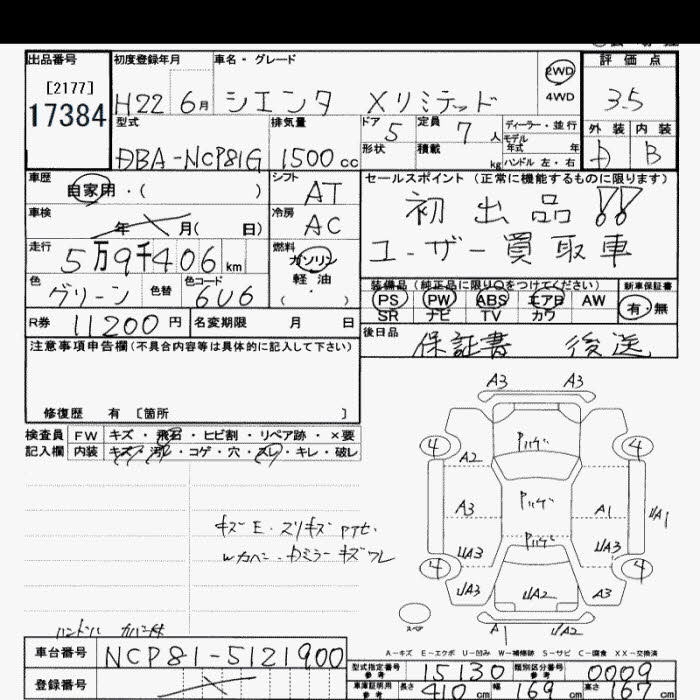 出品番号 初度登録年月 車名・グレード 2WD 評価点
[2177] 17384 H22 6月 シエンタ Xリミテッド 4WD 3.5
型式 排気量 ドア 5 定員 7人 ディーラー・並行 外装 内装
DBA-NCP81G 1500cc 形状 積載 kg モデル年式 年 ハンドル 左・右 D B
車歴 自家用・( ) シフト AT セールスポイント (正常に機能するものに限ります)
車検 年 月( 日) 冷房 AC 初出品!!
走行 5万9千406km 燃料 ガソリン 軽油 ( ) ユーザー買取車
色 グリーン 色替 色コード 6U6 装備品 (純正品に限り○をつけてください) 新車保証書
PS PW ABS エアB AW 有・無
SR ナビ TV カワ
R券 11200円 名変期限 月 日 後日品 保証書 後送
注意事項申告欄(不具合内容等は具体的に記入して下さい)
修復歴 有 [箇所 ]
検査員 FW キズ・飛石・ヒビ割・リペア跡・×要
記入欄 内装 キズ・汚レ・コゲ・穴・スレ・キレ・破レ
A3 A3
Pハゲ
4 4
A2
Pハゲ
A3 A1 UA1
Pハゲ
UA3 UA3
4 4
UA3 UA2 A3
A1 UA2
スペア
キズE・スリキズ
A-キズ E-エクボ U-凹み W-補修跡 S-サビ C-腐食 XX-交換済
車台番号 NCP81-5121900 型式指定番号 参考 15130 類別区分番号 参考 0009
登録番号 車庫証明用 参考 長さ 410cm 幅 169cm 高さ 167cm